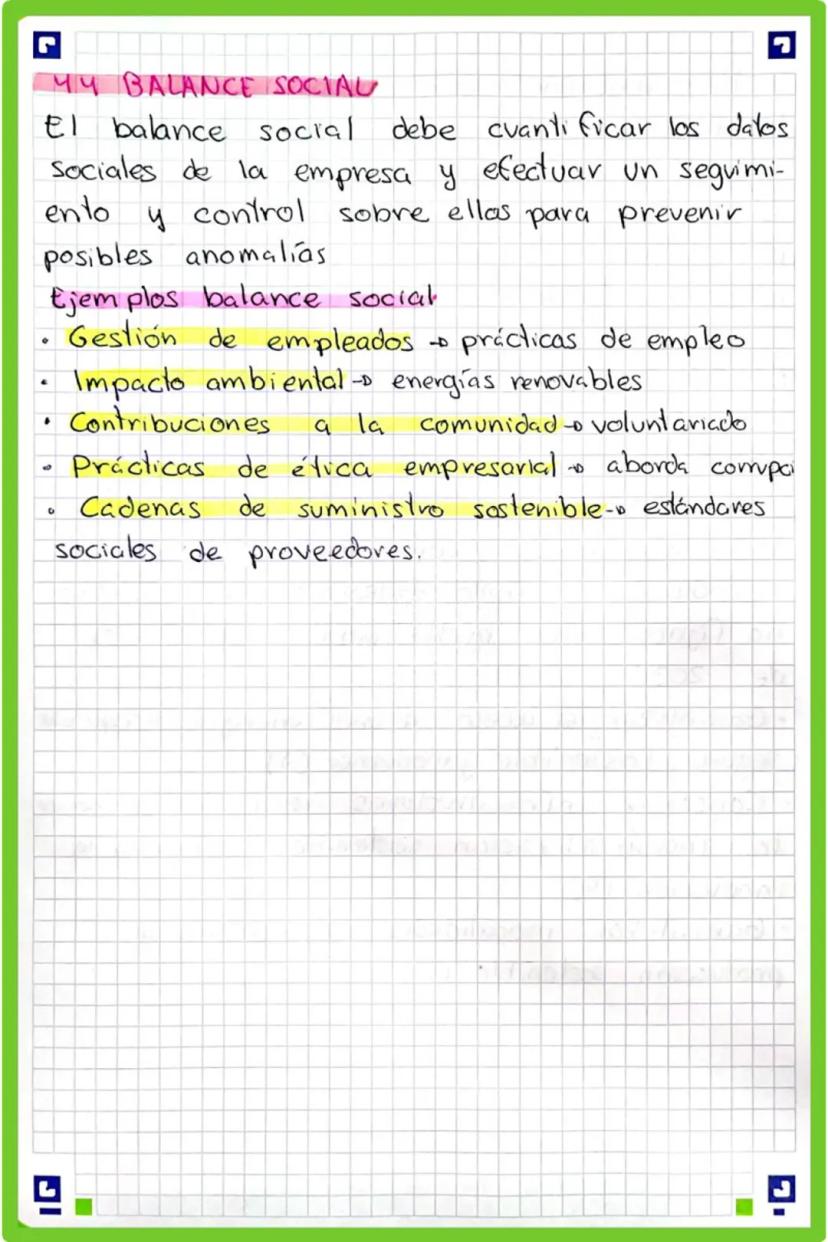 44 BALANCE SOCIAL
El balance social debe cuantificar los datos
sociales de la empresa y efectuar un seguimi-
ento y control sobre ellos para prevenir
posibles anomalías
Ejemplos balance social
· Gestión de empleados → prácticas de empleo
· Impacto ambiental → energías renovables
· Contribuciones a la comunidad → voluntariado
· Prácticas de ética empresarial → aborda
· Cadenas de suministro sostenible → estándares
sociales de proveedores.